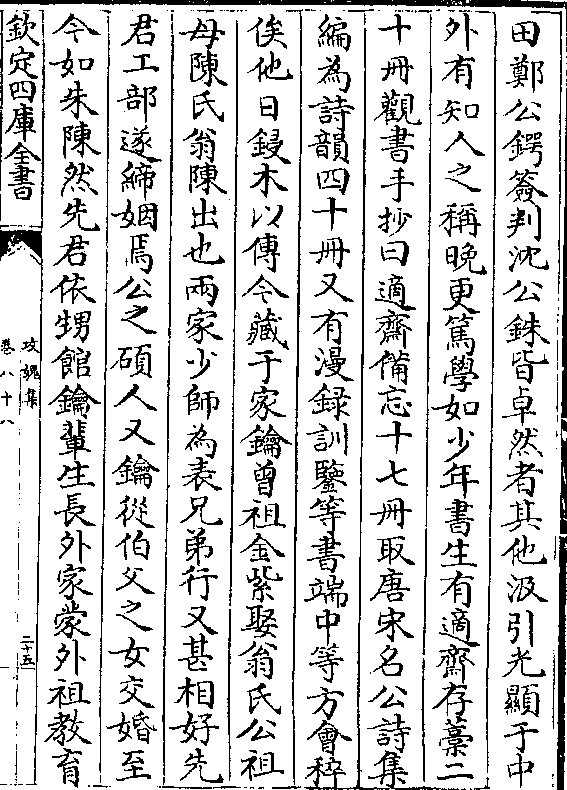 田鄭公鍔簽判沈公銖皆卓然者其他汲引光顯于中
外有知人之稱晚更篤學如少年書生有適齋存藳二
十册觀書手抄曰適齋備忘十七册取唐宋名公詩集
編為詩韻四十册又有漫録訓鑒等書端中等方㑹稡
俟他日鋟木以傳今藏于家鑰曽祖金紫娶翁氏公祖
母陳氏翁陳出也兩家少師為表兄弟行又甚相好先
君工部遂締姻焉公之碩人又鑰從伯父之女交婚至
今如朱陳然先君依甥館鑰輩生長外家蒙外祖教育
欽定四庫全書
攻媿集
卷八十八
二十五